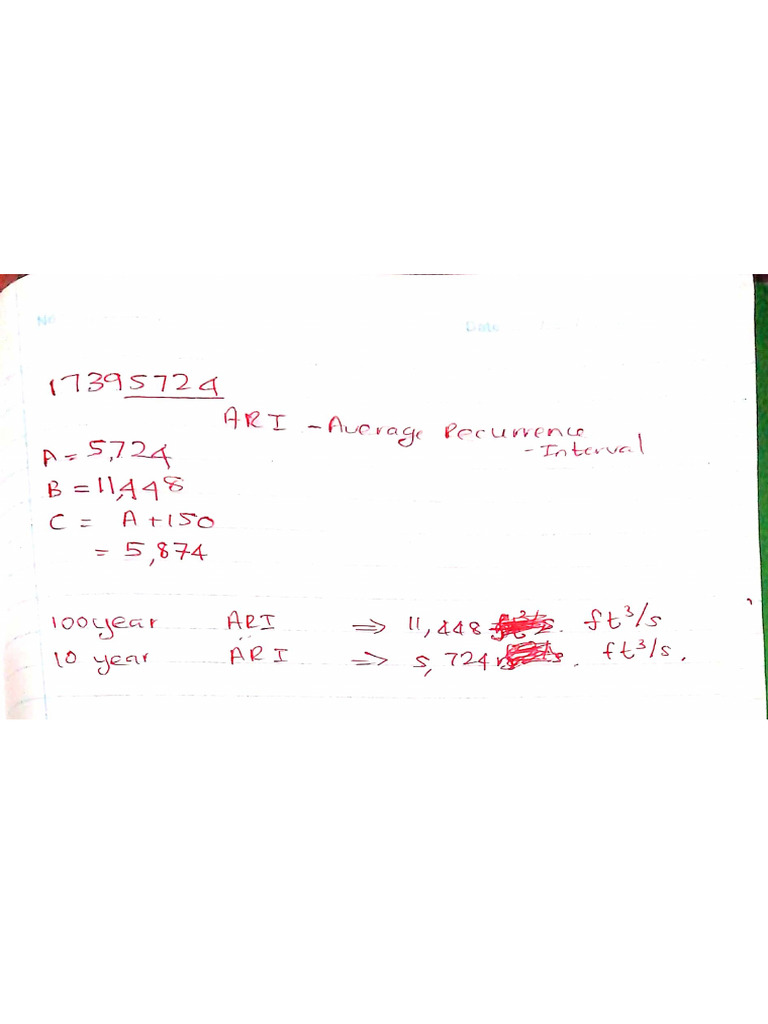 No
Date
17395724
ARI - Average Recurrence
- Interval
A = 5,724
B = 11,448
C = A + 150
= 5,874
100 year ARI ⇒ 11,448 ft³/s
10 year ARI ⇒ 5,724 ft³/s.